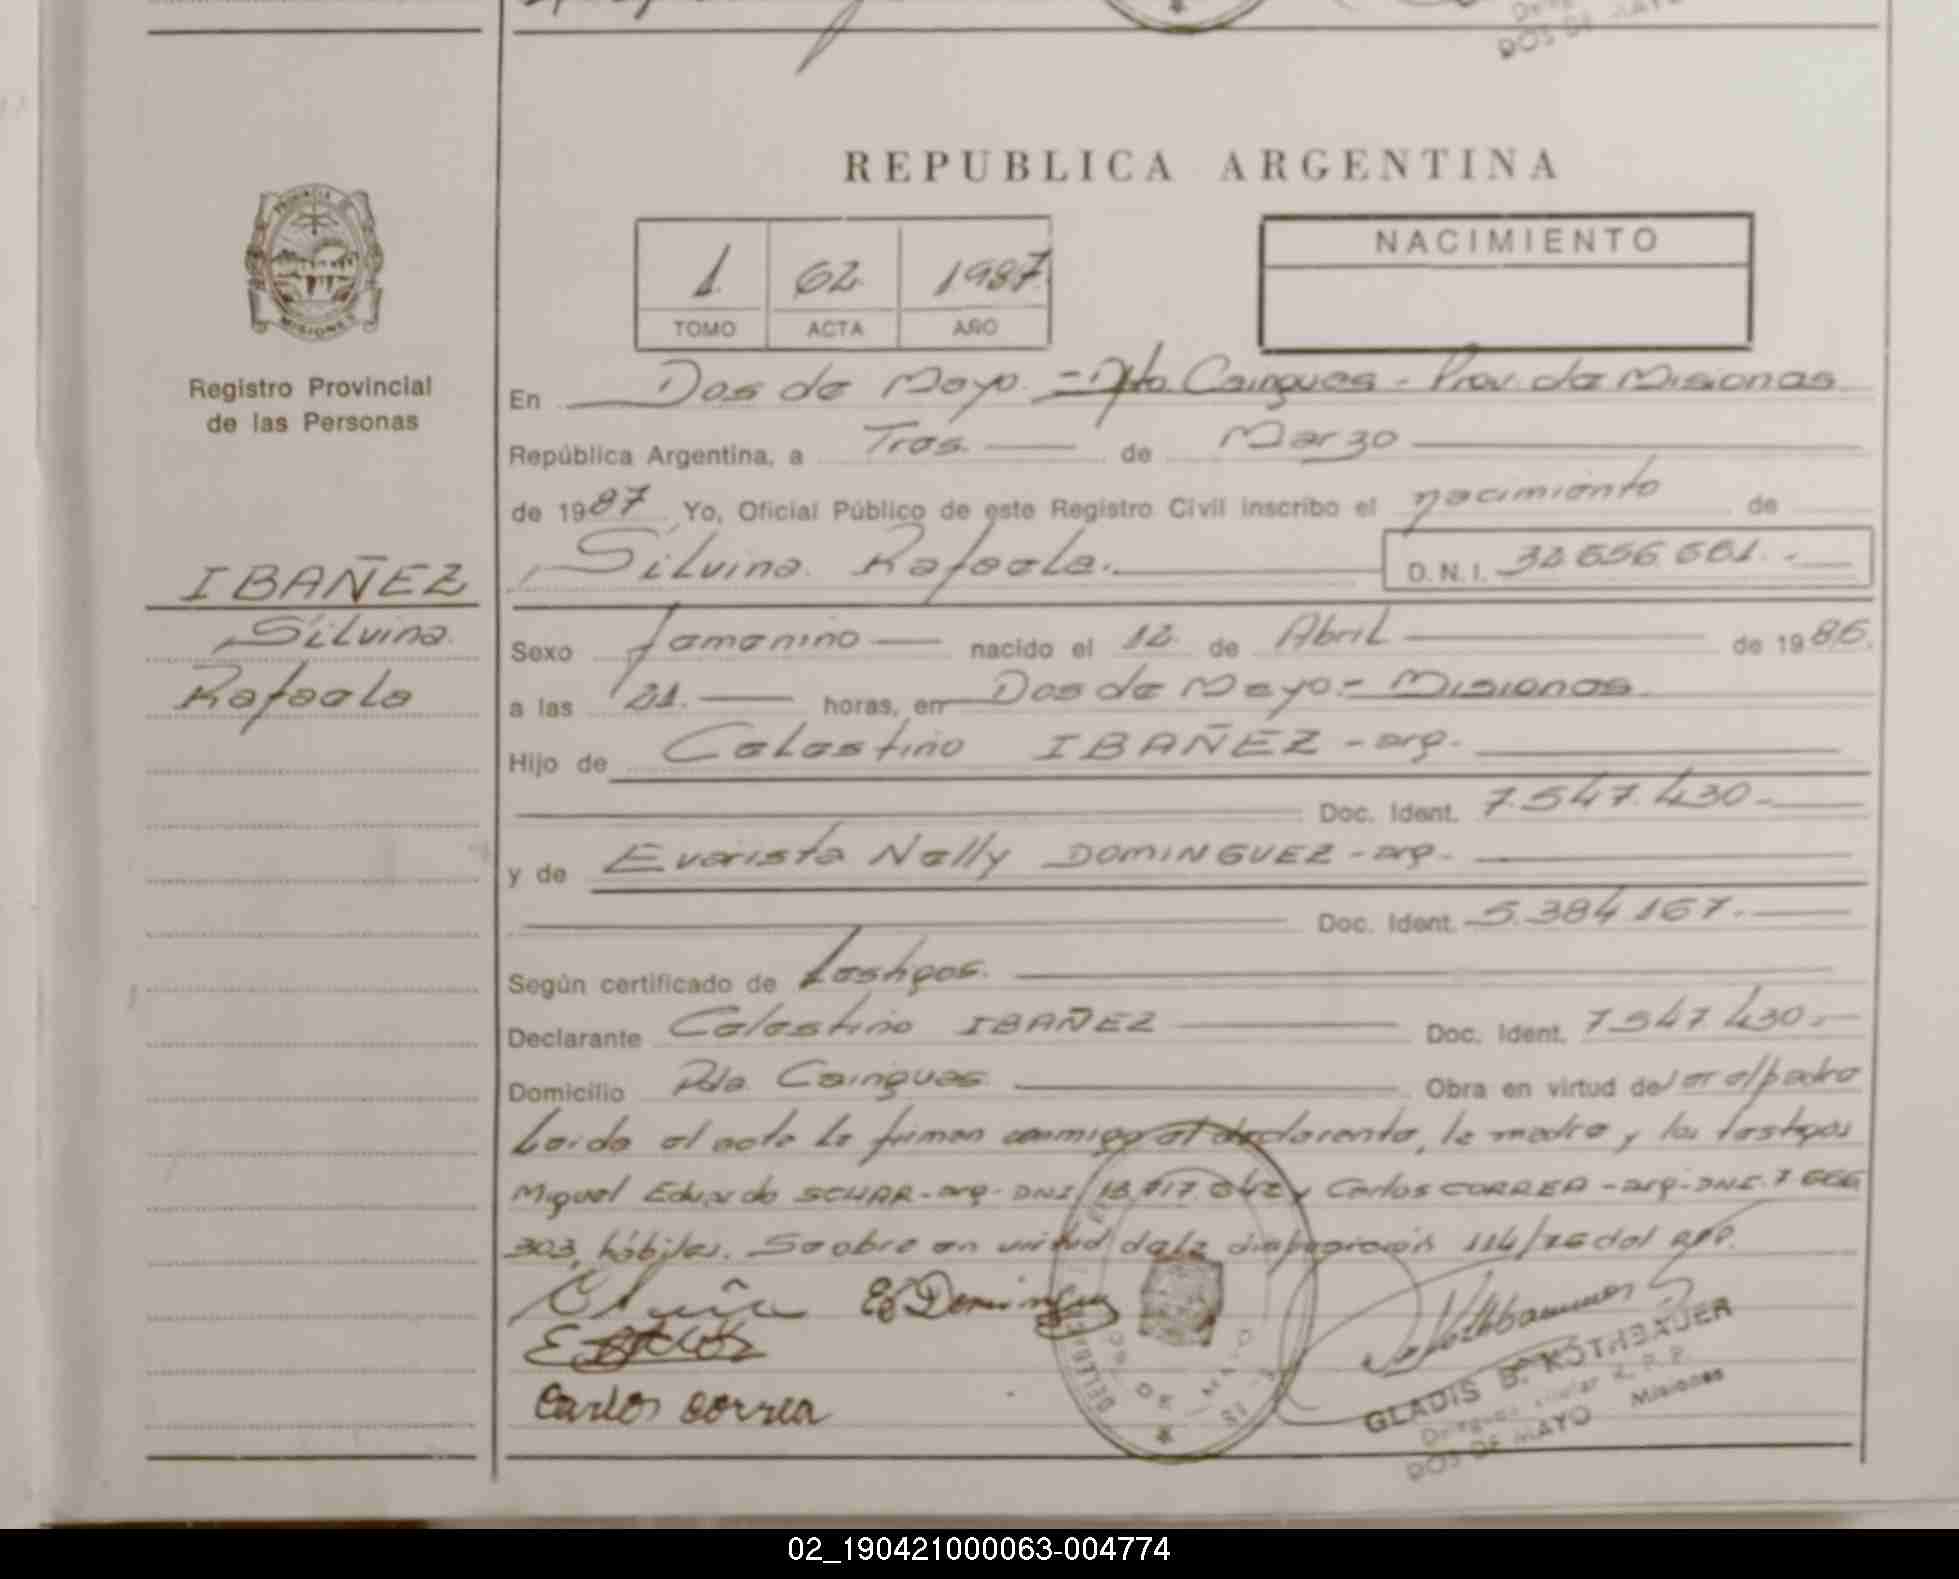 DOS DE MAYO
REPUBLICA ARGENTINA
PROVINCIA
MISIONES
Registro Provincial
de las Personas
1 62 1987
TOMO ACTA AÑO
NACIMIENTO
En Dos de Mayo - Dpto Cainguas - Prov. de Misiones
República Argentina, a Tres de Marzo
de 1987 Yo, Oficial Público de este Registro Civil inscribo el nacimiento de
Silvina Rafaela. D.N.I. 32 656 661
IBAÑEZ
Silvina
Rafaela
Sexo femenino nacido el 12 de Abril de 1986.
a las 21. horas, en Dos de Mayo - Misiones
Hijo de Celestino IBAÑEZ - arg.
Doc. Ident. 7.547.430
y de Evarista Nelly DOMINGUEZ - arg.
Doc. Ident. 5.384.167.
Según certificado de testigos.
Declarante Celestino IBAÑEZ Doc. Ident. 7547430
Domicilio Pdo. Cainguas Obra en virtud de ser el padre
Leida el acta la firman conmigo el declarante, la madre y los testigos
Miguel Eduardo SCHAR - arg - DNI y Carlos CORREA - arg - DNI. 7 666
303, hábiles. Se obra en virtud de la disposición 114/76 del RPP.
E Domingu
Carlos Correa
DOS DE MAYO
GLADIS B. KOTHBAUER
R. P. P.
DOS DE MAYO Misiones
02_190421000063-004774